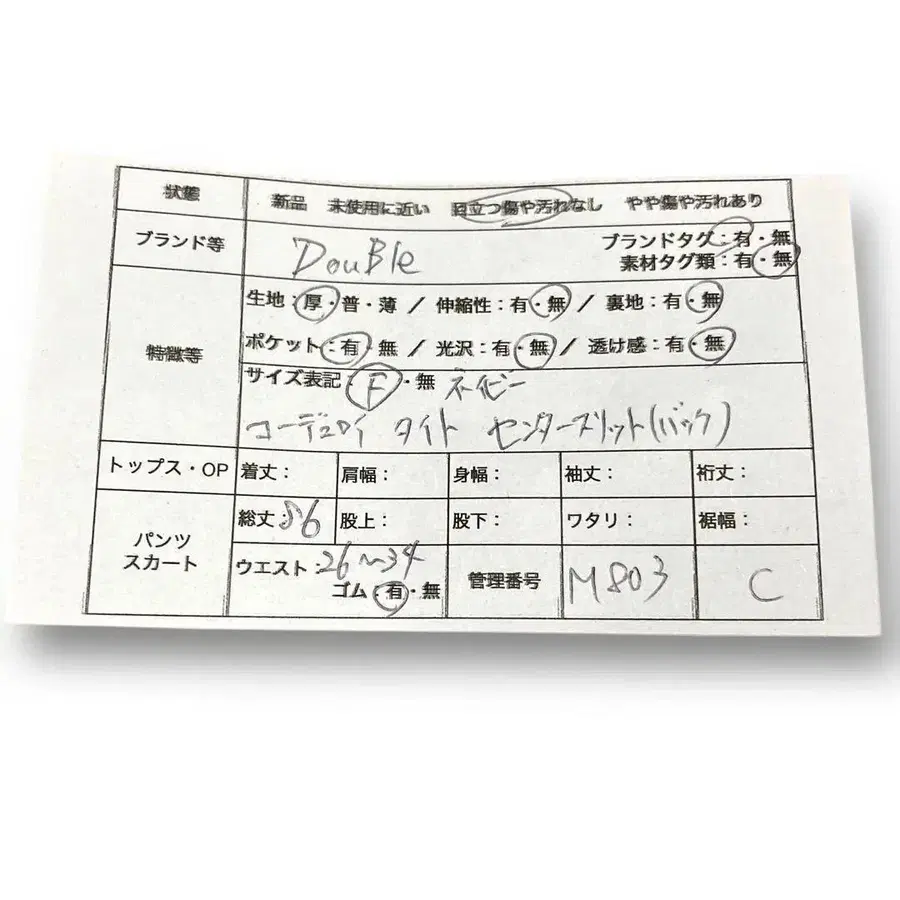 状態 新品 未使用に近い 目立つ傷や汚れなし やや傷や汚れあり
ブランド等 DouBle ブランドタグ：有・無
素材タグ類：有・無
特徴等 生地：厚・普・薄 / 伸縮性：有・無 / 裏地：有・無
ポケット：有・無 / 光沢：有・無 / 透け感：有・無
サイズ表記：F・無 ネイビー
コーデュロイ タイト センタースリット(バック)
トップス・OP 着丈： 肩幅： 身幅： 袖丈： 裄丈：
パンツ スカート 総丈：86 股上： 股下： ワタリ： 裾幅：
ウエスト：26〜34 ゴム：有・無 管理番号 M803 C